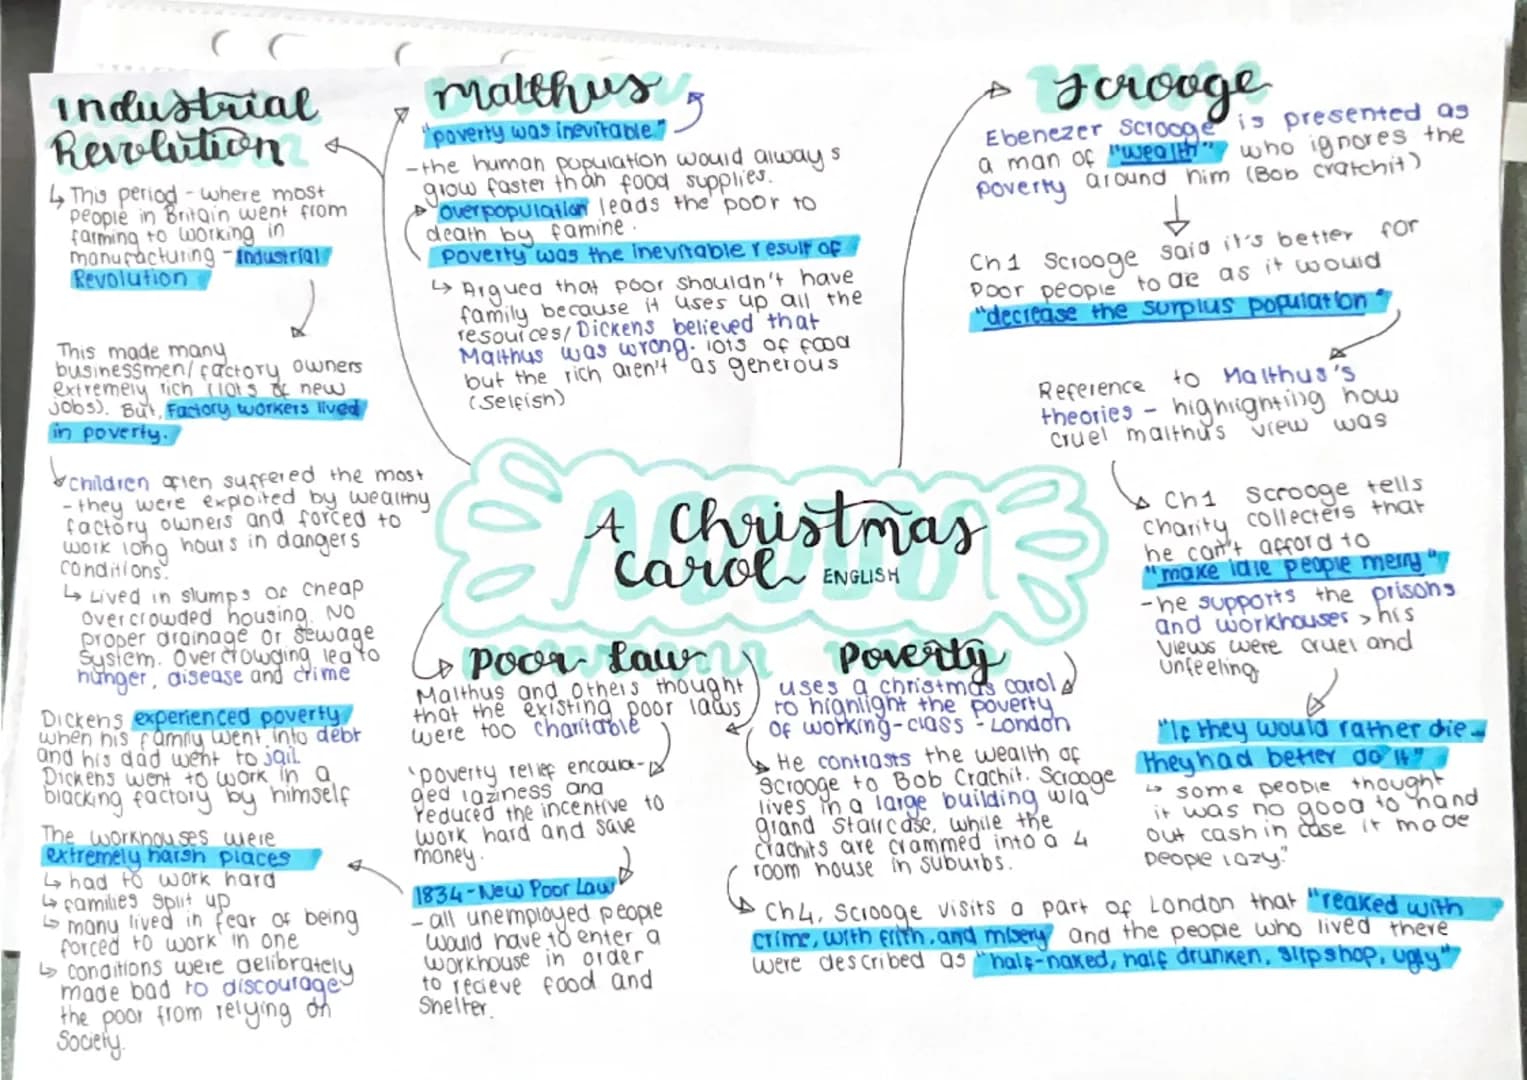 Industrial
Revolution
↳ This period - where most
people in Britain went from
farming to working in
manufacturing - Industrial
Revolution
This made many
businessmen/factory owners
extremely rich (lots of new
jobs). But, Factory workers lived
in poverty.
children often suffered the most
- they were exploited by wealthy
factory owners and forced to
work long hours in dangers
conditions.
↳ Lived in slumps of cheap
overcrowded housing. No
proper drainage or sewage
system. Overcrowding led to
hunger, disease and crime
Dickens experienced poverty
when his family went into debt
and his dad went to jail
Dickens went to work in a
blacking factory by himself
The workhouses were
extremely harsh places
↳ had to work hard
↳ families split up
↳ many lived in fear of being
forced to work in one
↳ conditions were delibrately
made bad to discourage
the poor from relying on
society.
Malthus
"poverty was inevitable"
- the human population would always
grow faster than food supplies.
overpopulation leads the poor to
death by famine.
poverty was the inevitable result of
↳ Argued that poor shouldn't have
family because it uses up all the
resources/Dickens believed that
Malthus was wrong. lots of food
but the rich aren't as generous
(selfish)
A Christmas
Carol ENGLISH
Poor Law
Malthus and others thought
that the existing poor laws
were too charitable
'poverty relief encoura-
ged laziness and
reduced the incentive to
work hard and save
money.
1834 - New Poor Law
- all unemployed people
would have to enter a
workhouse in order
to recieve food and
shelter.
Poverty
uses a christmas carol
to highlight the poverty
of working-class - London
He contrasts the wealth of
Scrooge to Bob Crachit. Scrooge
lives in a large building w/a
grand staircase, while the
Crachits are crammed into a 4
room house in suburbs.
Ch4, Scrooge visits a part of London that "reaked with
crime, with filth, and misery and the people who lived there
were described as "half-naked, half drunken, slipshop, ugly"
Scrooge
Ebenezer Scrooge is presented as
a man of "wealth" who ignores the
poverty around him (Bob cratchit)
Ch1 Scrooge said it's better for
poor people to die as it would
"decrease the surplus population"
Reference to Malthus's
theories - highlighting how
cruel malthus view was
Ch1 Scrooge tells
charity collecters that
he can't afford to
"make idle people merry"
- he supports the prisons
and workhouses > his
views were cruel and
unfeeling
"If they would rather die -
they had better do it"
↳ some people thought
it was no good to hand
out cash in case it made
people lazy."